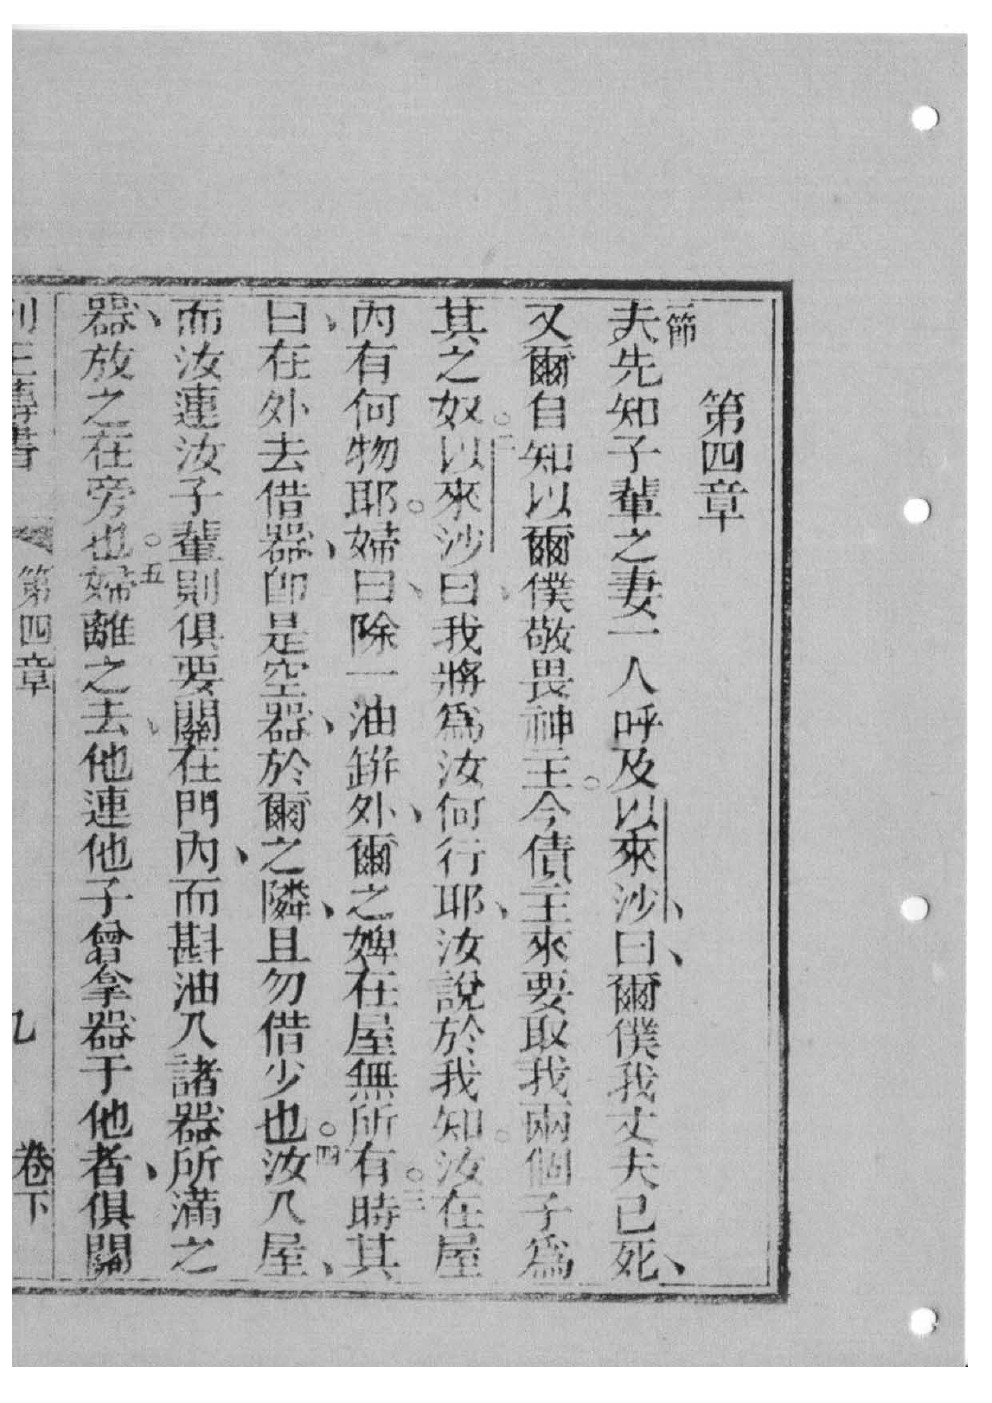 第四章
一節夫先知子輩之妻一人呼及以來沙、曰、爾僕我丈夫已死、
又爾自知以爾僕敬畏神王。今債主來要取我兩個子為
其之奴。二以來沙曰、我將為汝何行耶、汝說於我知。汝在屋
內有何物耶。婦曰、除一油缾外、爾之婢在屋無所有。三時其
曰、在外去借器、即是空器、於爾之隣、且勿借少也。四汝入屋、
而汝連汝子輩則俱要關在門內、而斟油入諸器所滿之
器、放之在旁也。五婦離之去、他連他子曾拿器于他者、俱關
列王傳書 第四章 九 卷下